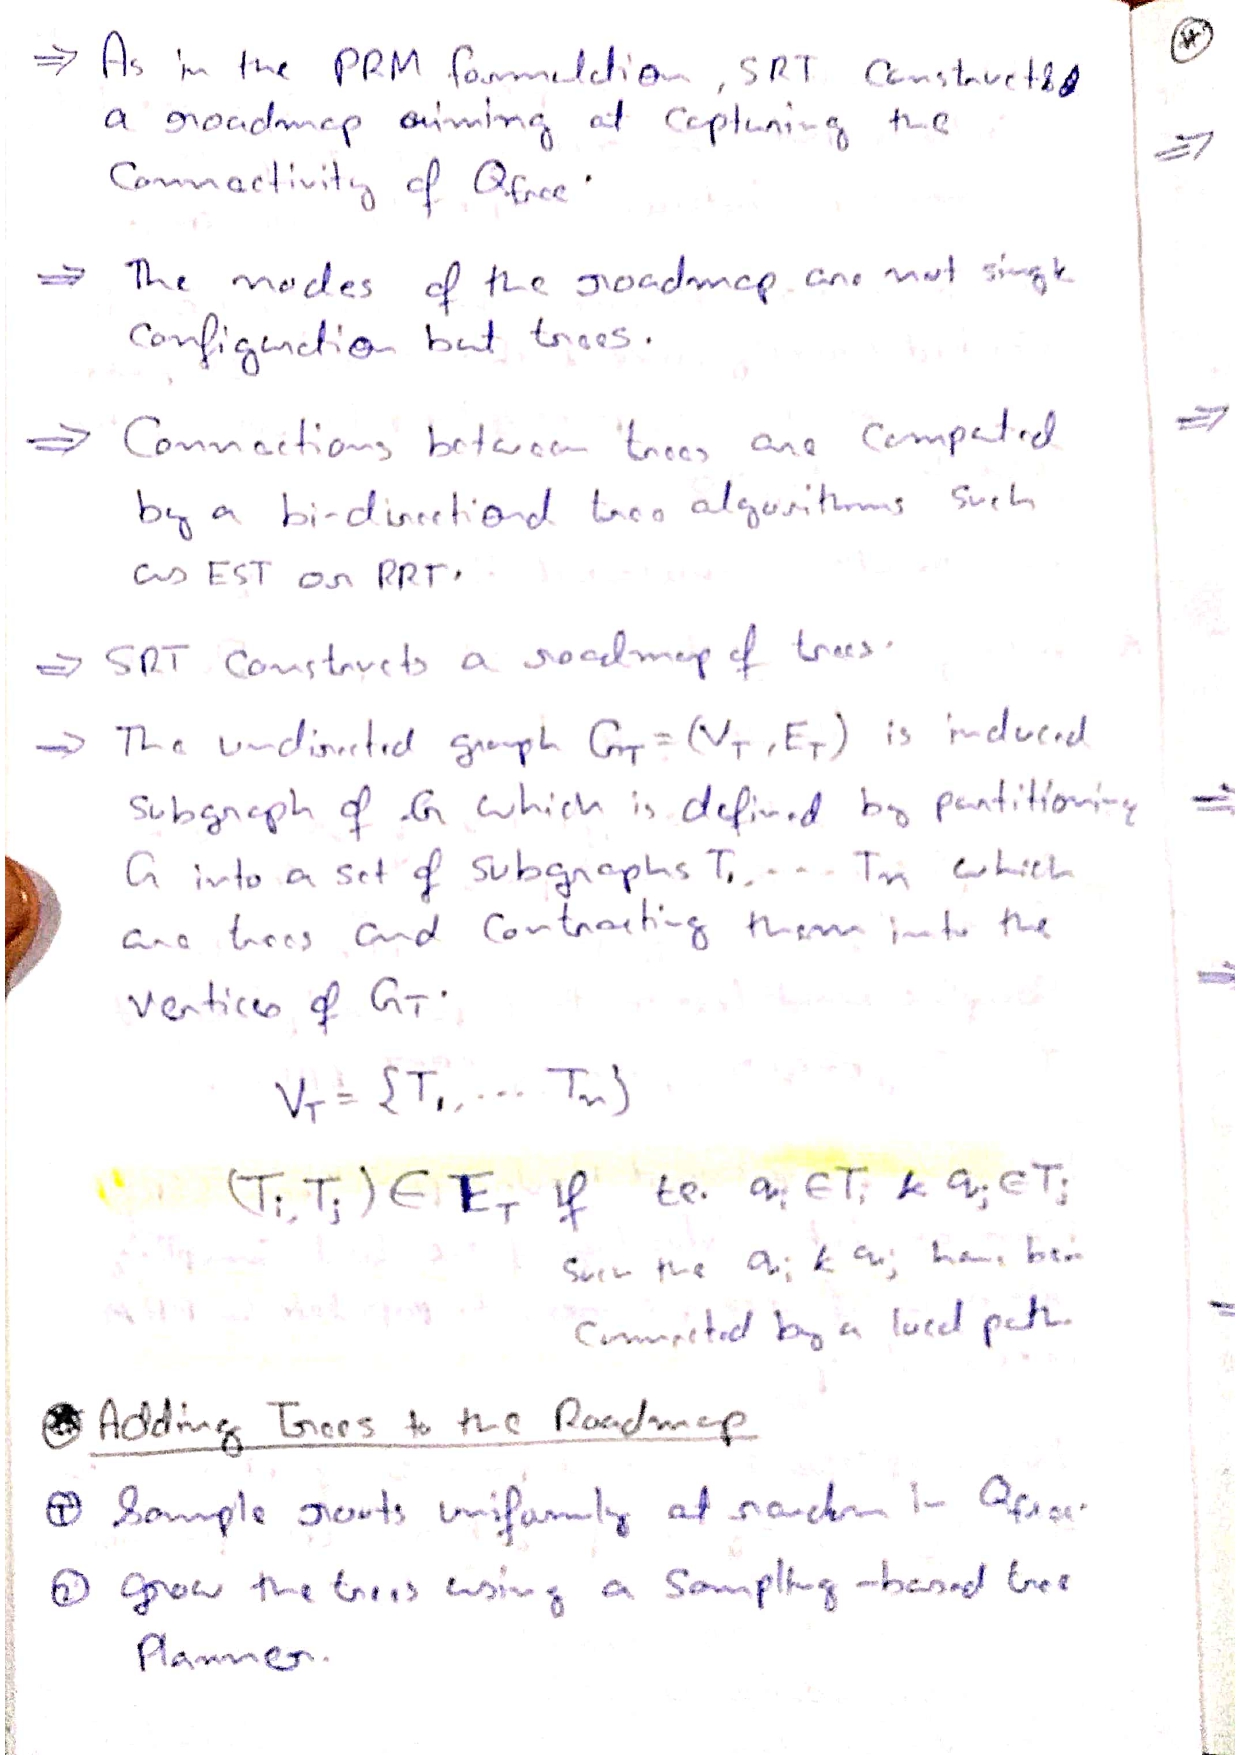 ⇒ As in the PRM formulation, SRT constructs
a roadmap aiming at capturing the
Connectivity of Qfree.
⇒ The nodes of the roadmap are not single
configuration but trees.
⇒ Connections between trees are computed
by a bi-directional tree algorithms such
as EST or RRT.
⇒ SRT constructs a roadmap of trees.
⇒ The undirected graph G_T = (V_T, E_T) is induced
subgraph of G which is defined by partitioning
G into a set of subgraphs T₁, ... Tₙ which
are trees and contracting them into the
vertices of G_T.
V_T = {T₁, ... Tₙ}
(Tᵢ, Tⱼ) ∈ E_T if qᵢ ∈ Tᵢ & qⱼ ∈ Tⱼ
such the qᵢ & qⱼ have been
connected by a local path.
Adding Trees to the Roadmap
① Sample roots uniformly at random in Qfree.
② grow the trees using a sampling-based tree
Planner.